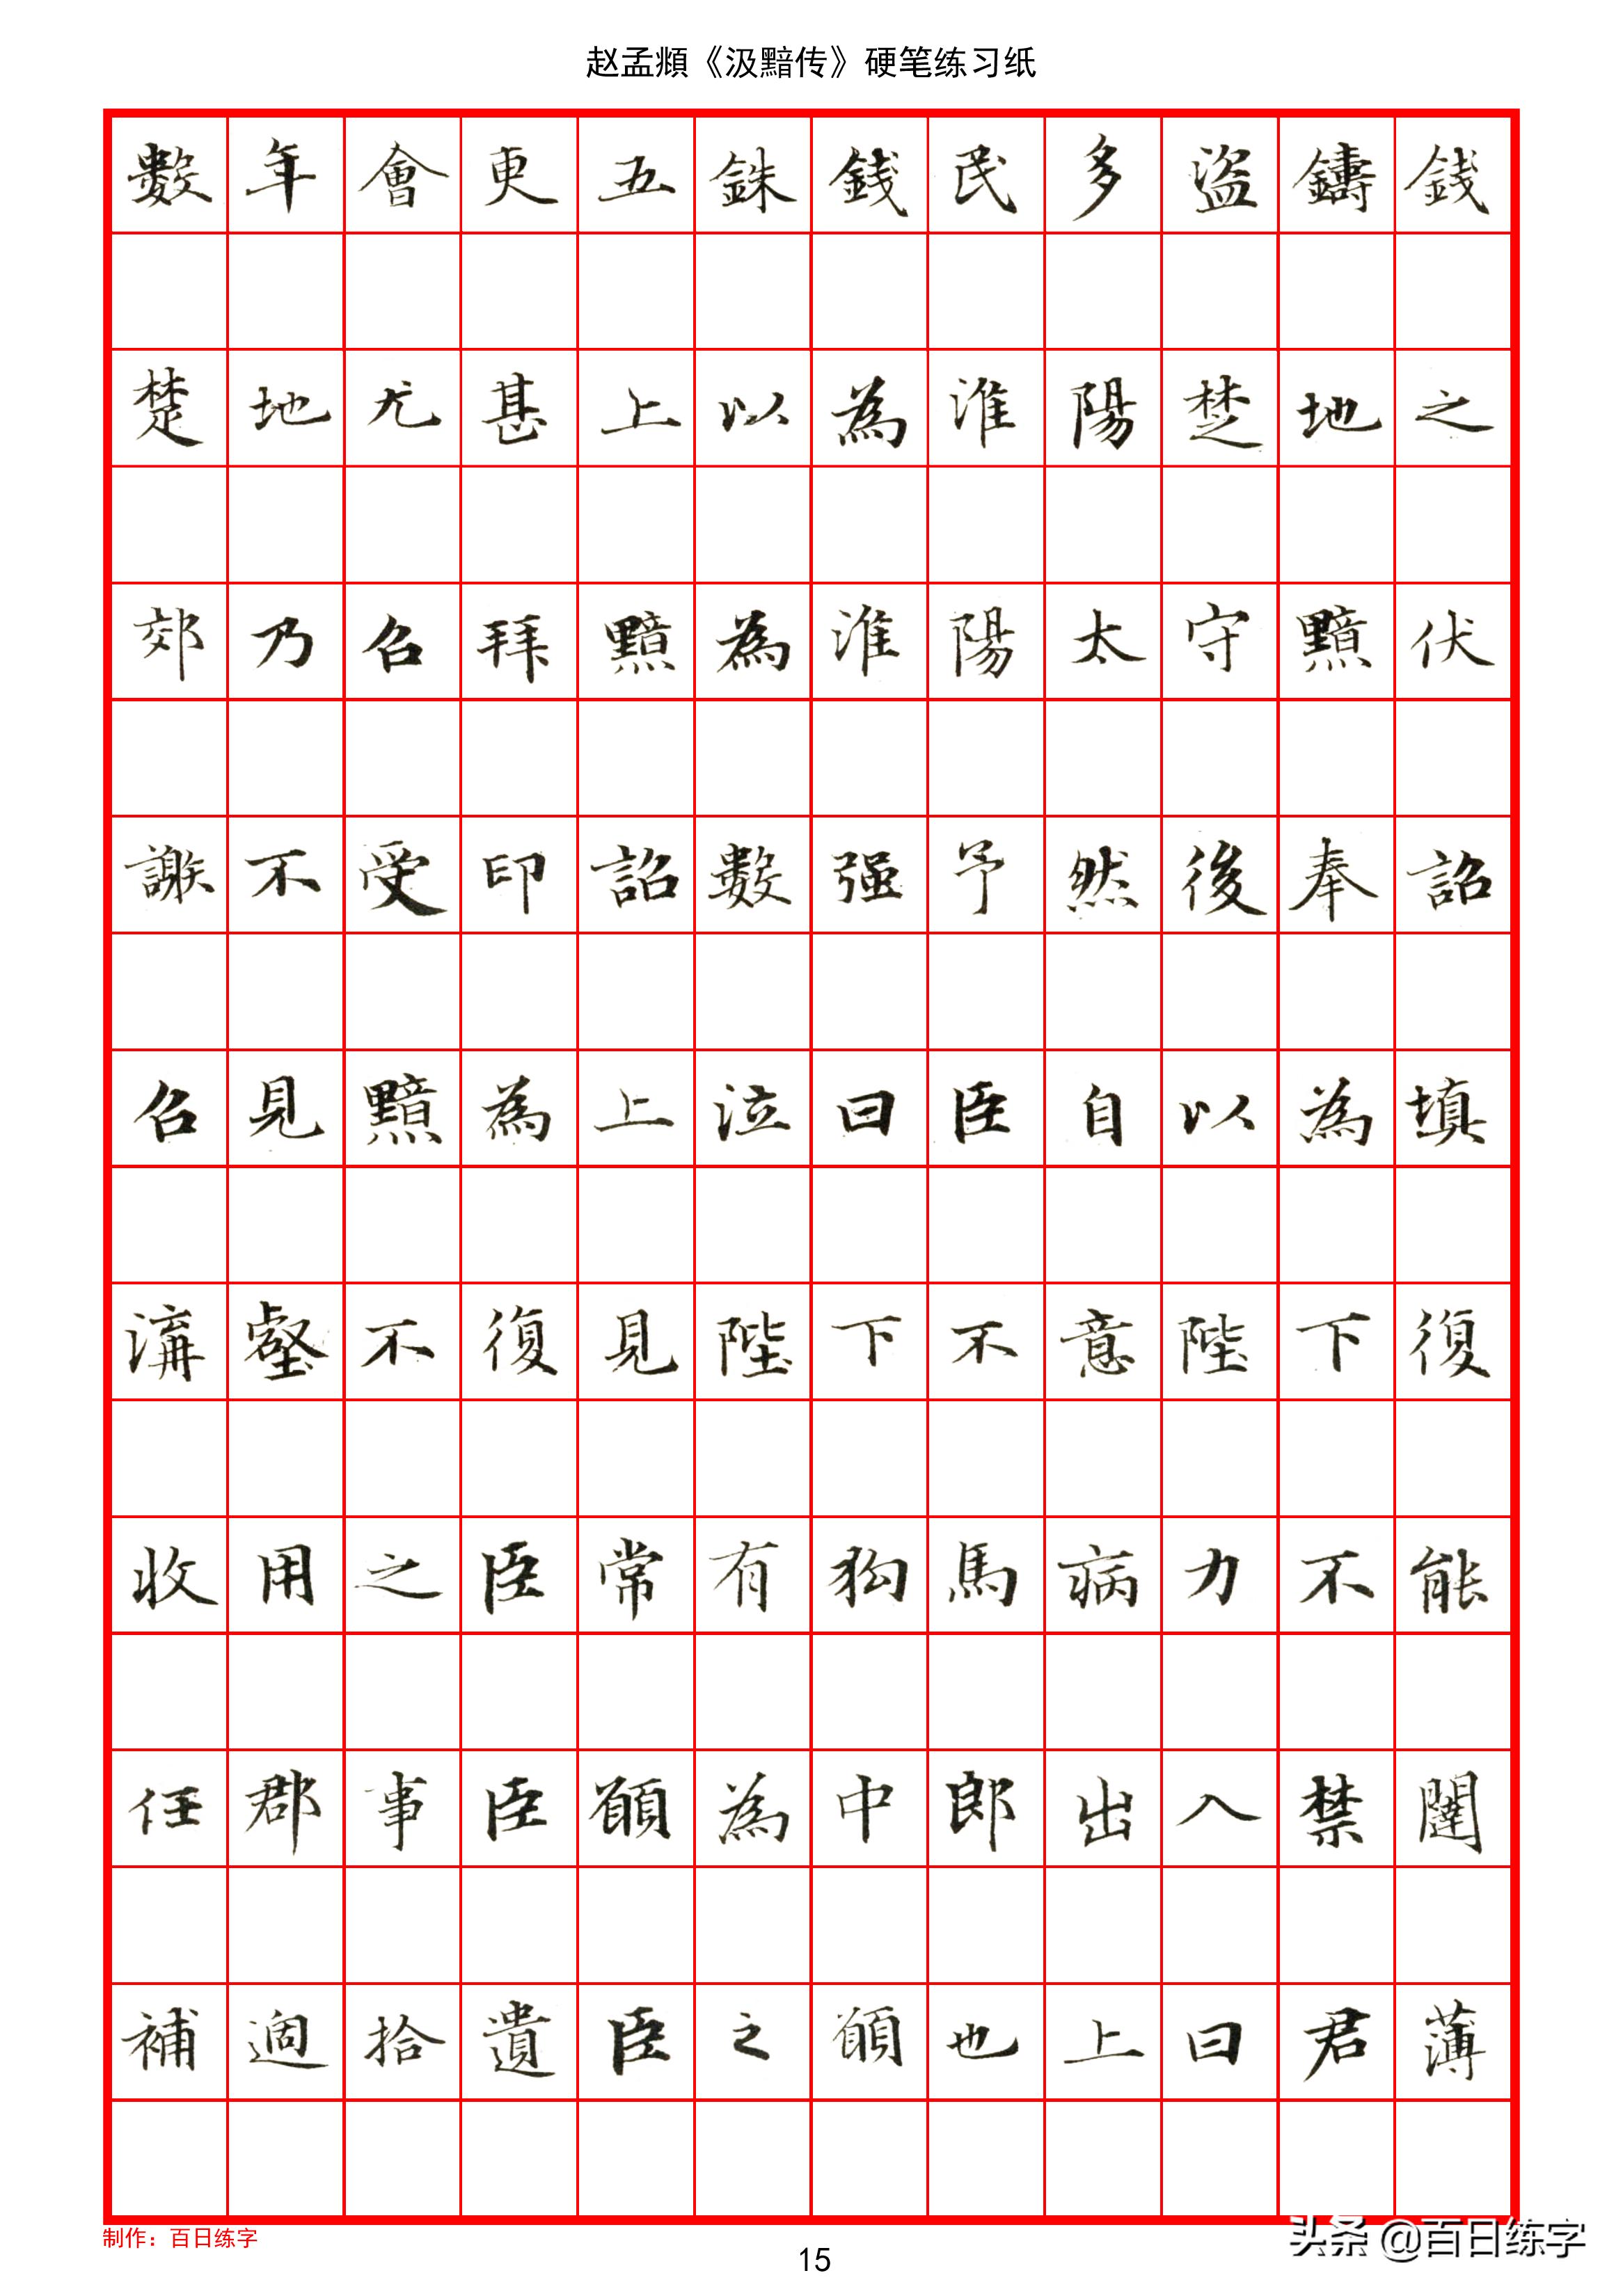 赵孟頫《汲黯传》硬笔练习纸
數年會更五銖錢民多盜鑄錢
楚地尤甚上以為淮陽楚地之
郊乃召拜黯為淮陽太守黯伏
謝不受印詔數强予然後奉詔
召見黯為上泣曰臣自以為填
溝壑不復見陛下不意陛下復
收用之臣常有狗馬病力不能
任郡事臣願為中郎出入禁闥
補過拾遺臣之願也上曰君薄
制作：百日练字
15
头条 @百日练字